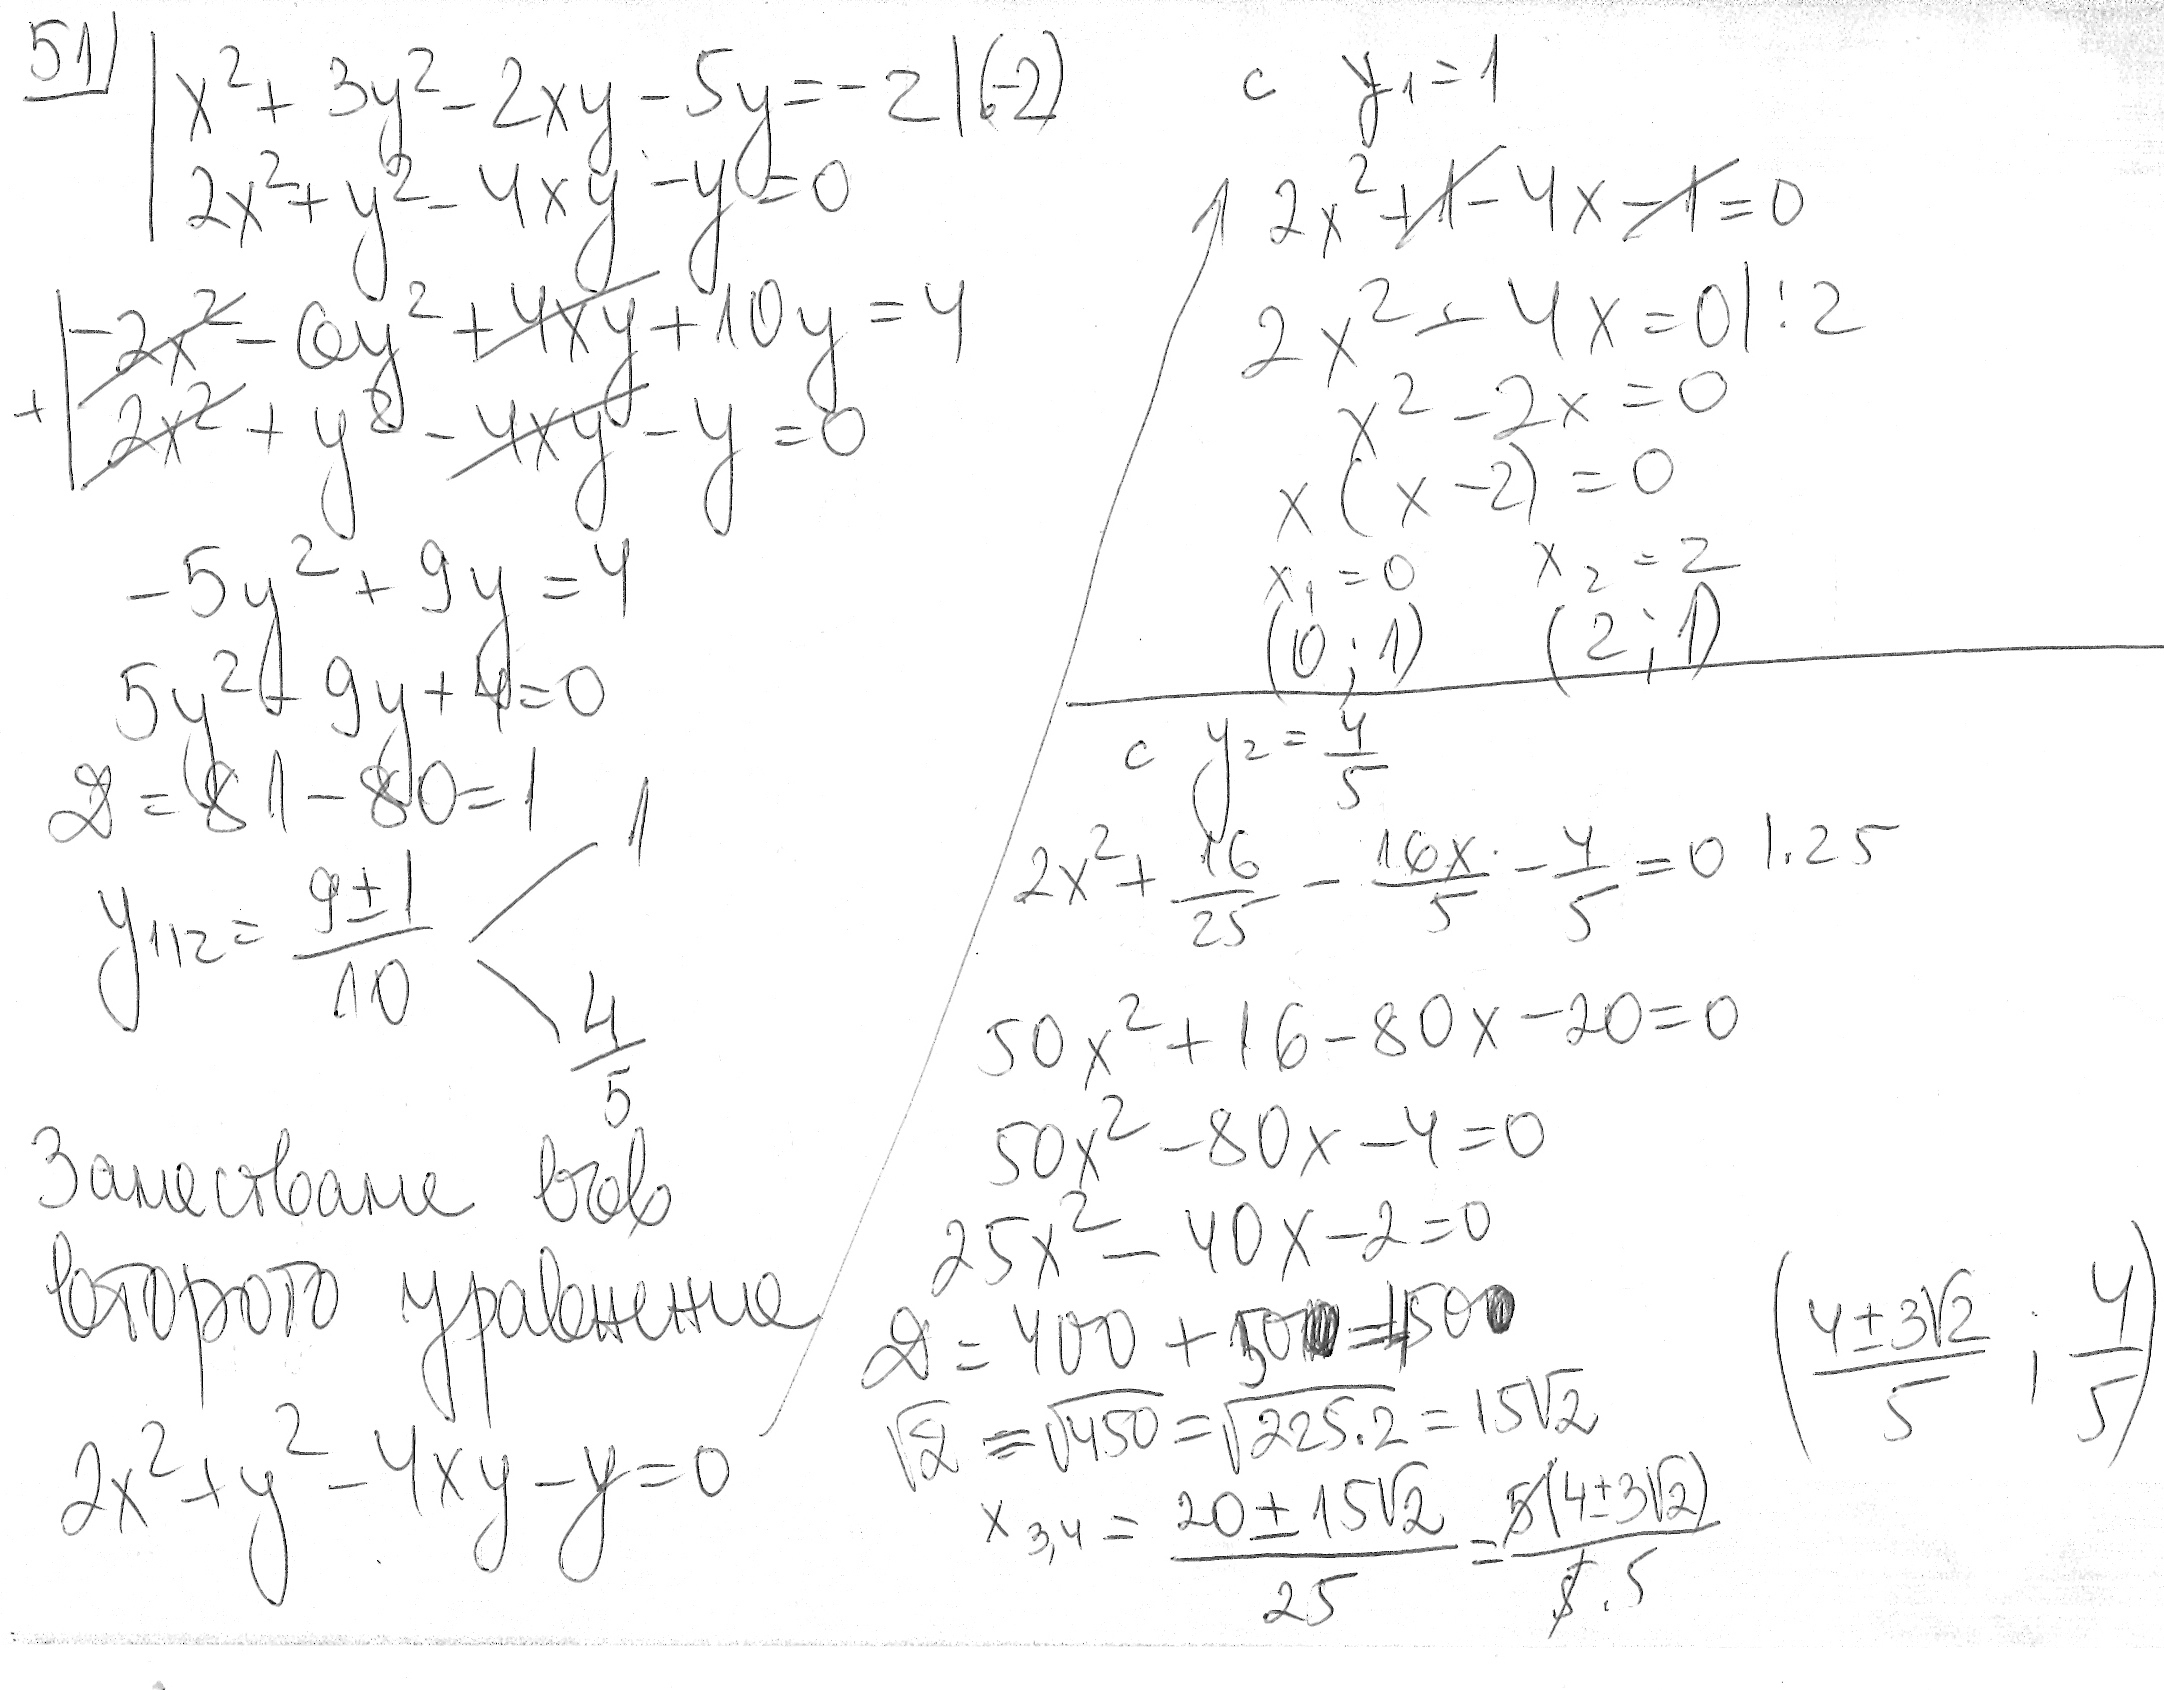 51)
x² + 3y² - 2xy - 5y = -2 |(-2)
2x² + y² - 4xy - y = 0
-2x² - 6y² + 4xy + 10y = 4
+
2x² + y² - 4xy - y = 0
-5y² + 9y = 4
5y² - 9y + 4 = 0
D = 81 - 80 = 1
y₁,₂ = (9 ± 1)/10
1
4/5
Заместваме във
второто уравнение
2x² + y² - 4xy - y = 0
с y₁ = 1
2x² + 1 - 4x - 1 = 0
2x² - 4x = 0 | : 2
x² - 2x = 0
x(x - 2) = 0
x₁ = 0 x₂ = 2
(0 ; 1) (2 ; 1)
с y₂ = 4/5
2x² + 16/25 - 16x/5 - 4/5 = 0 | . 25
50x² + 16 - 80x - 20 = 0
50x² - 80x - 4 = 0
25x² - 40x - 2 = 0
D = 400 + 50 = 450
√D = √450 = √225.2 = 15√2
x₃,₄ = (20 ± 15√2)/25 = 5(4 ± 3√2)/5.5
((4 ± 3√2)/5 ; 4/5)